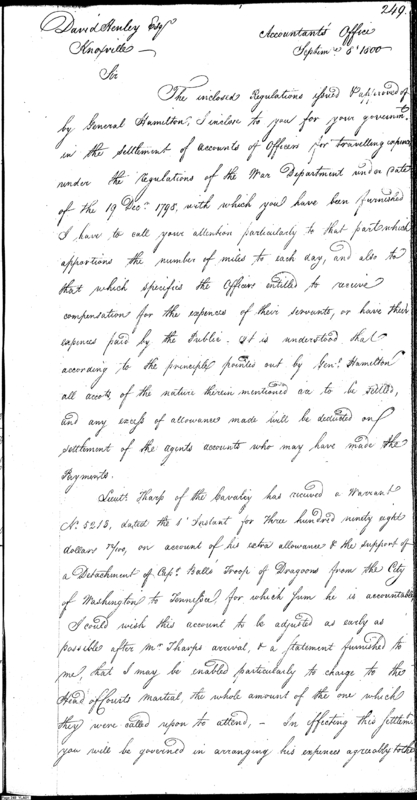 249.
David Henley Esqr
Accountants' Office
Knoxville
Septemr 5' 1800
Sir
The inclosed Regulations issued & approved of
by General Hamilton, I inclose to you for your governmt.
in the settlement of accounts of Officers for travelling expences
under the regulations of the War Department under date
of the 19 Decr. 1798, with which you have been furnished
I have to call your attention particularly to that part which
apportions the number of miles to each day, and also to
that which specifies the Officers entitled to receive
compensation for the expences of their servants, or have their
expences paid by the Public. It is understood that
according to the principles pointed out by Genl. Hamilton
all accots. of the nature therein mentioned are to be settled,
and any excess of allowance made will be deducted on
settlement of the agents accounts who may have made the
Payments.
Lieut. Tharp of the Cavalry has received a Warrant
No. 5213, dated the 5' Instant for three hundred ninety eight
dollars /100, on account of his extra allowance & the support of
a Detachment of Capn. Balls Troop of Dragoons from the City
of Washington to Tennessee, for which sum he is accountable
I could wish this account to be adjusted as early as
possible after Mr. Tharps arrival, & a statement furnished to
me, that I may be enabled particularly to charge to the
Head of Courts martial, the whole amount of the one which
they were called upon to attend, - In effecting this settlemt
you will be governed in arranging his expences agreeably to the